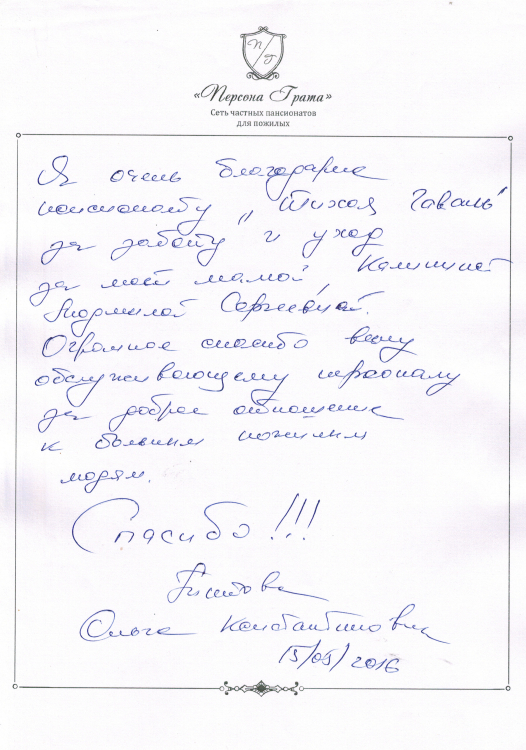 П
Г
«Персона Грата»
Сеть частных пансионатов
для пожилых
Я очень благодарна
пансионату „Тихая Гавань"
за заботу и уход
за моей мамой, Калининой
Людмилой Сергеевной.
Огромное спасибо всему
обслуживающему персоналу
за доброе отношение
к больным пожилым
людям.
Спасибо!!!
Ольга Константиновна
15/05/2016